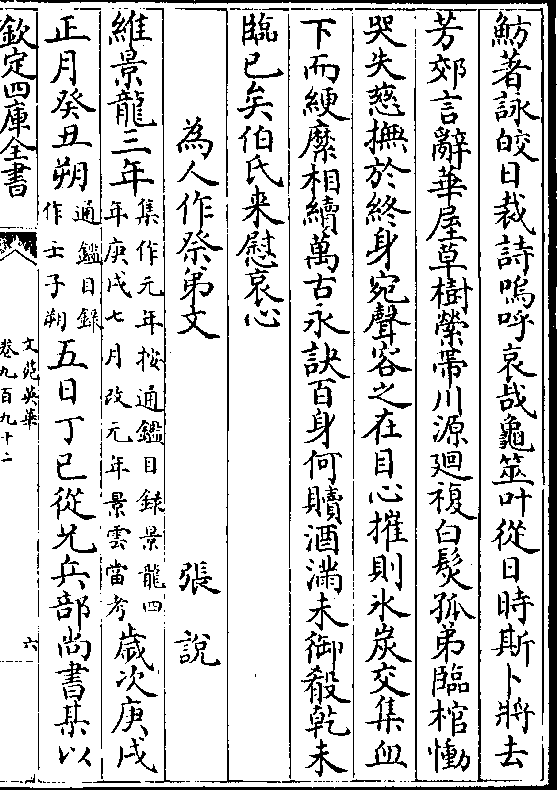 魴著詠皎日裁詩嗚呼哀哉龜筮叶從日時斯卜將去
芳郊言辭華屋草樹縈帶川源廻複白髮孤弟臨棺慟
哭失慈撫於終身宛聲容之在目心摧則氷炭交集血
下而綆縻相續萬古永訣百身何贖酒滿未御殽乾未
臨已矣伯氏來慰哀心
為人作祭弟文 張說
維景龍三年集作元年按通鑑目録景龍四年庚戌七月改元年景雲當考歲次庚戌
正月癸丑朔通鑑目録作壬子朔五日丁巳從兄兵部尚書某以
欽定四庫全書
文苑英華
卷九百九十二
六